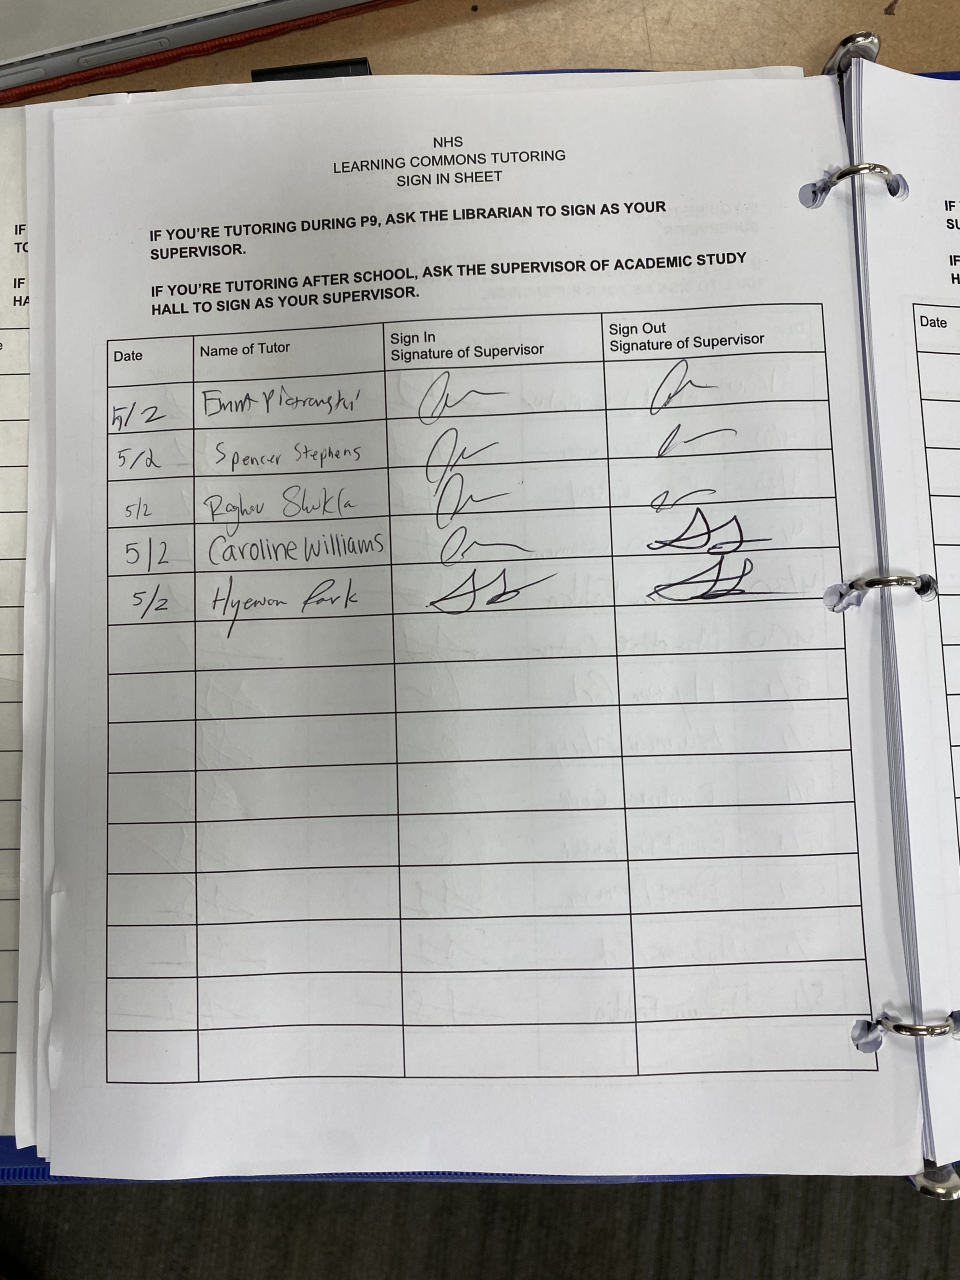 NHS
LEARNING COMMONS TUTORING
SIGN IN SHEET
IF YOU'RE TUTORING DURING P9, ASK THE LIBRARIAN TO SIGN AS YOUR
SUPERVISOR.
IF YOU'RE TUTORING AFTER SCHOOL, ASK THE SUPERVISOR OF ACADEMIC STUDY
HALL TO SIGN AS YOUR SUPERVISOR.
Date Name of Tutor Sign In Signature of Supervisor Sign Out Signature of Supervisor
5/2
5/2 Spencer Stephens
5/2 Raghav Shukla
5/2 Caroline Williams
5/2 Hyewon Park
IF
TO
IF
HA
IF
SU
IF
H
Date